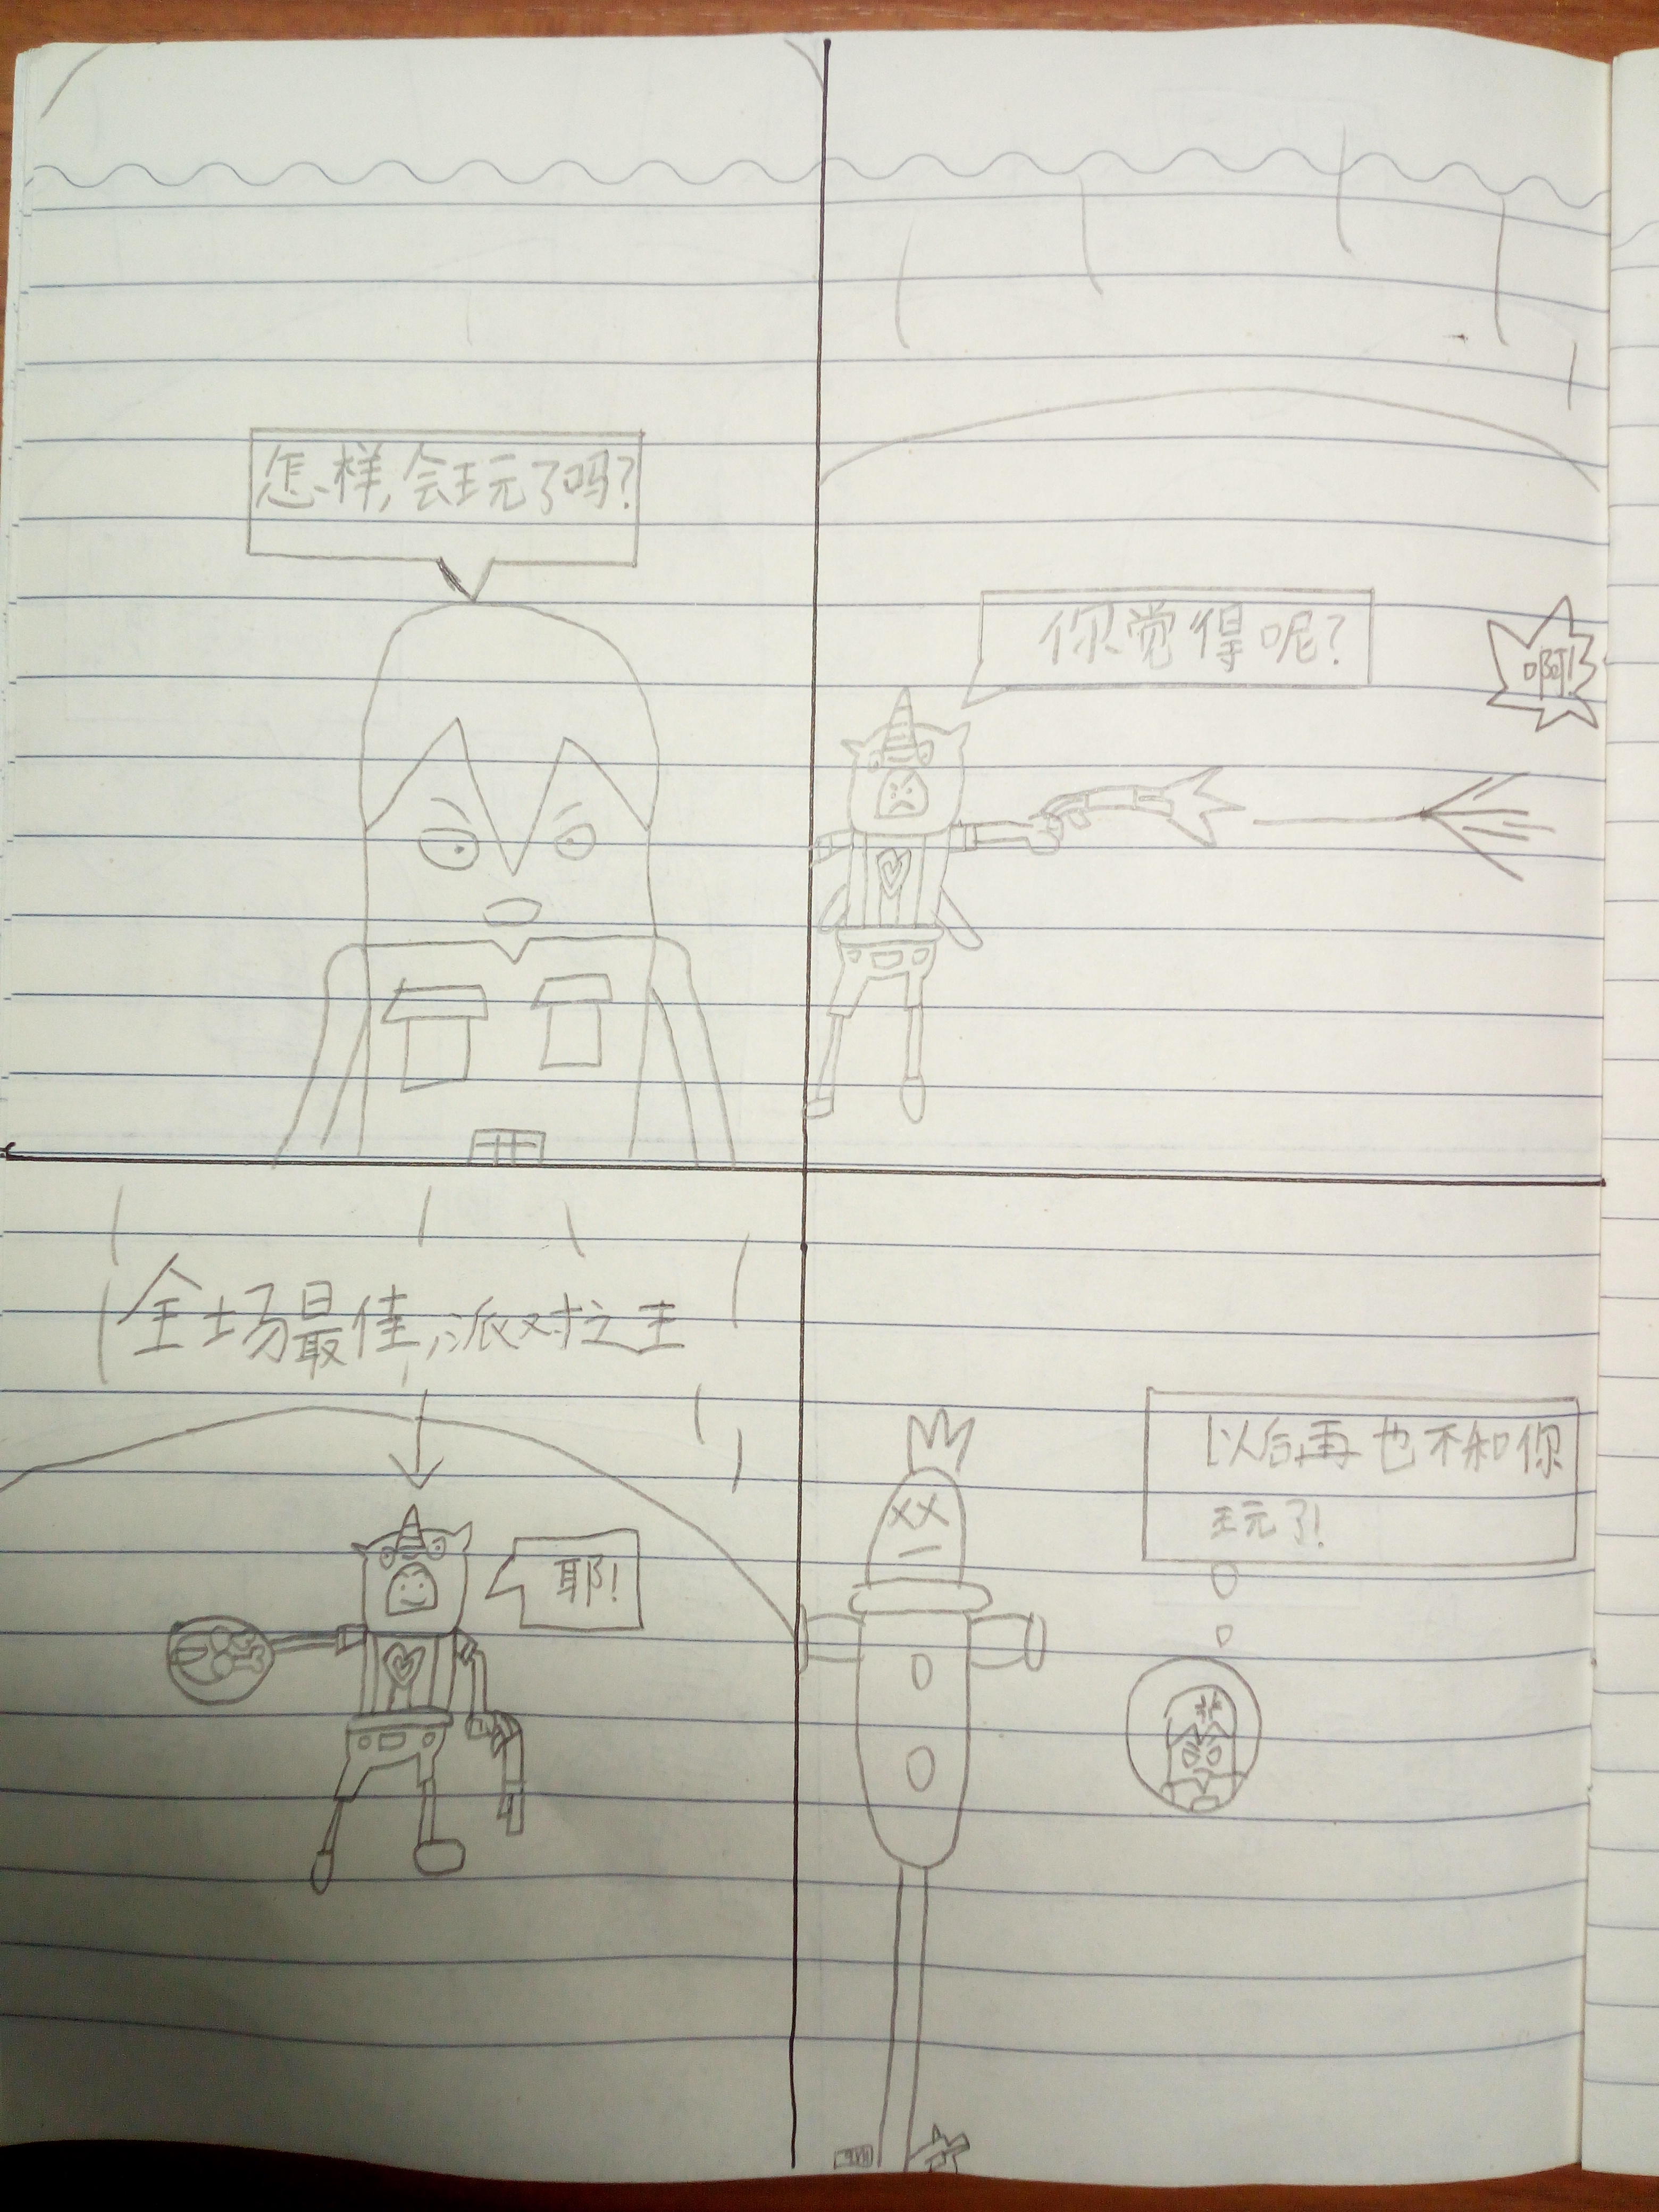 怎样,会玩了吗?
你觉得呢?
啊!
全场最佳,派对之王
耶!
以后再也不和你
玩了!